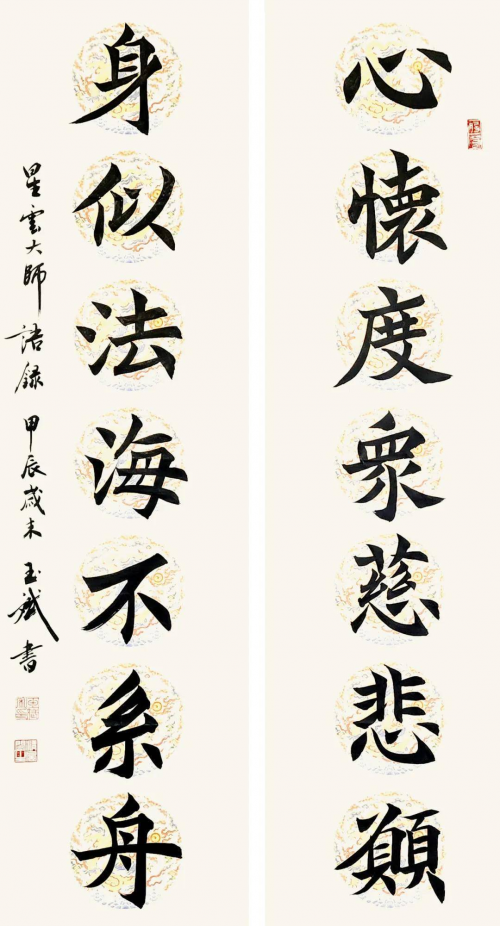 心懷度衆慈悲願
身似法海不系舟
星雲大師語録 甲辰歲末 玉斌書